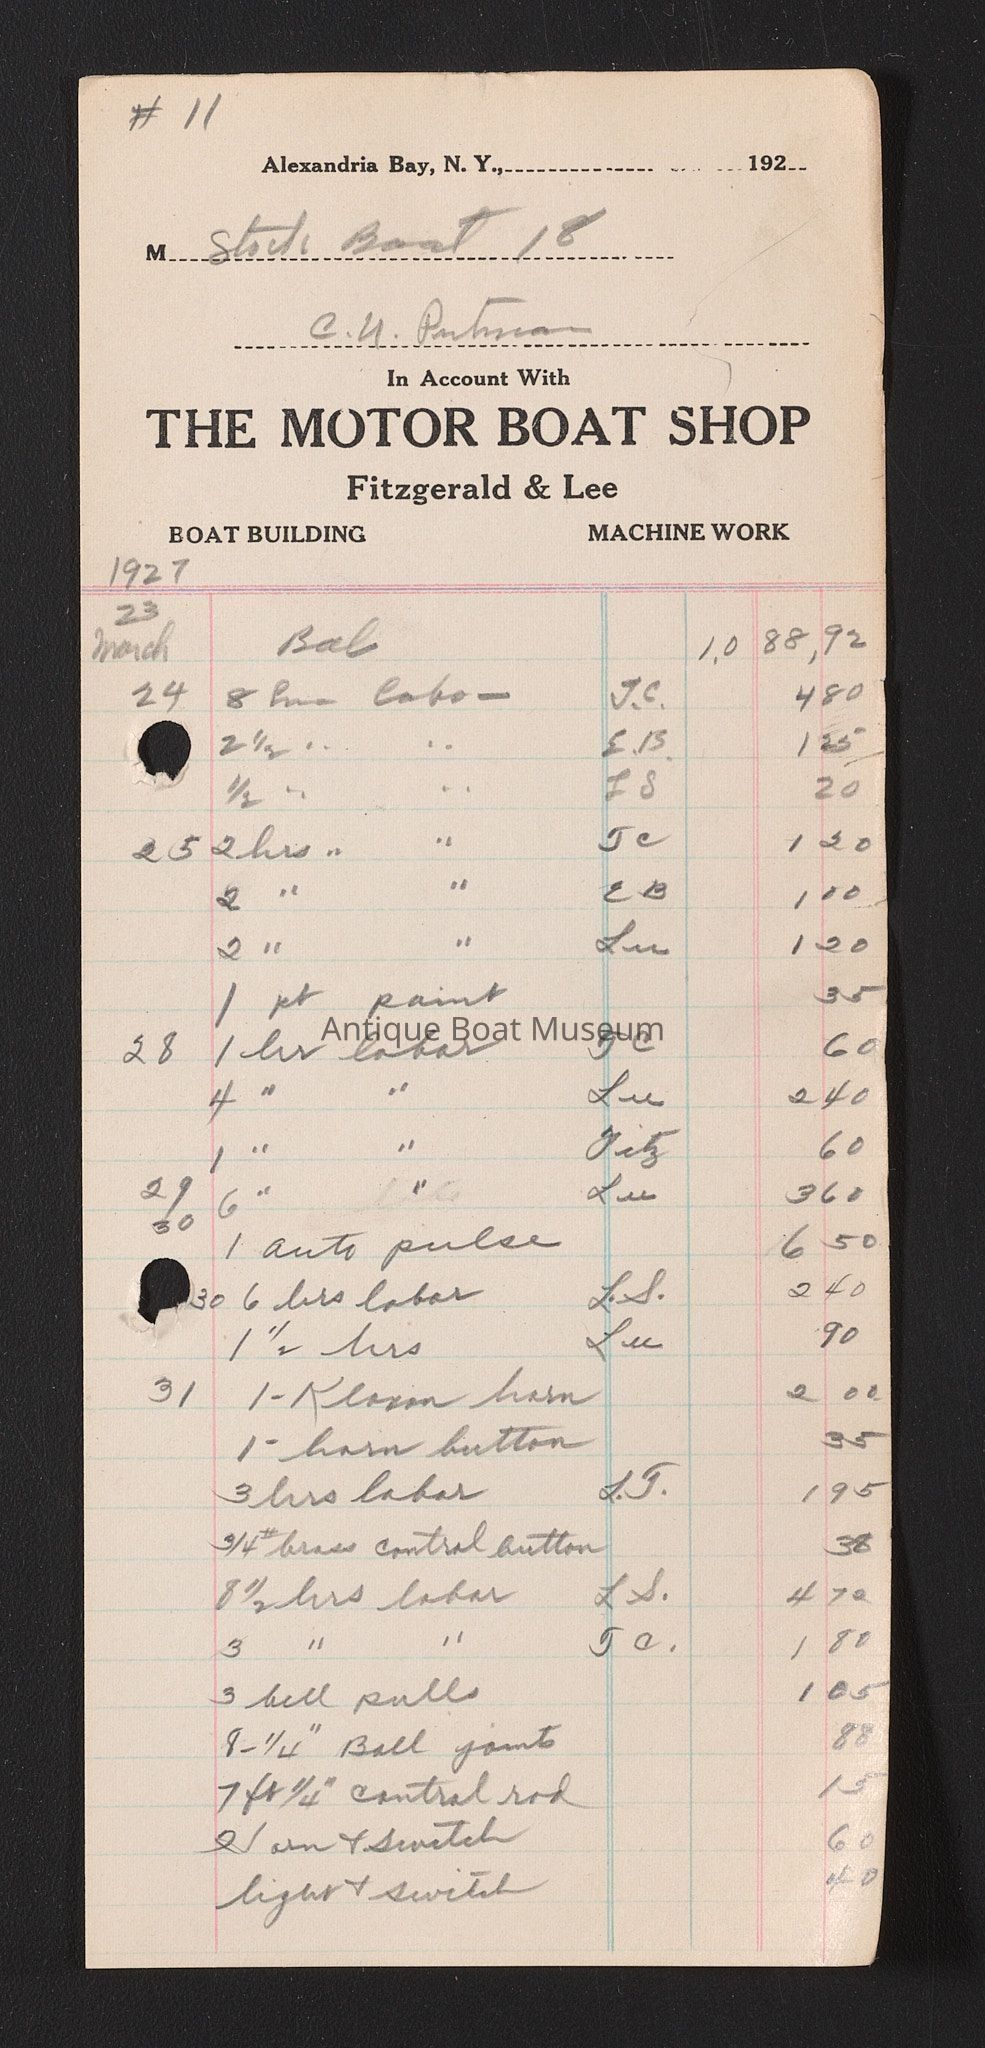 # 11
Alexandria Bay, N. Y., 192
M Stock Boat 18
C. H. Putman
In Account With
THE MOTOR BOAT SHOP
Fitzgerald & Lee
BOAT BUILDING MACHINE WORK
1927
23
March Bal 1,0 88,92
24 8 hrs labor T.C. 4 80
2 1/2 " " E.B. 1 25
1/2 " " L S 20
25 2 hrs " " T C 1 20
2 " " E B 1 00
2 " " Lee 1 20
1 pt paint 35
Antique Boat Museum
28 1 hr labor T C 60
4 " " Lee 2 40
1 " " Fitz 60
29 6 " " Lee 3 60
30
1 auto pulse 6 50
30 6 hrs labor L.S. 2 40
1 1/2 hrs Lee 90
31 1 - Klaxon horn 2 00
1 - horn button 35
3 hrs labor L.T. 1 95
3/4 # brass control button 38
8 1/2 hrs labor L S. 4 72
3 " " T C. 1 80
3 bell pulls 1 05
8 - 1/4" Ball joints 88
7 ft 1/4" control rod 15
orn & switch 60
light & switch 40